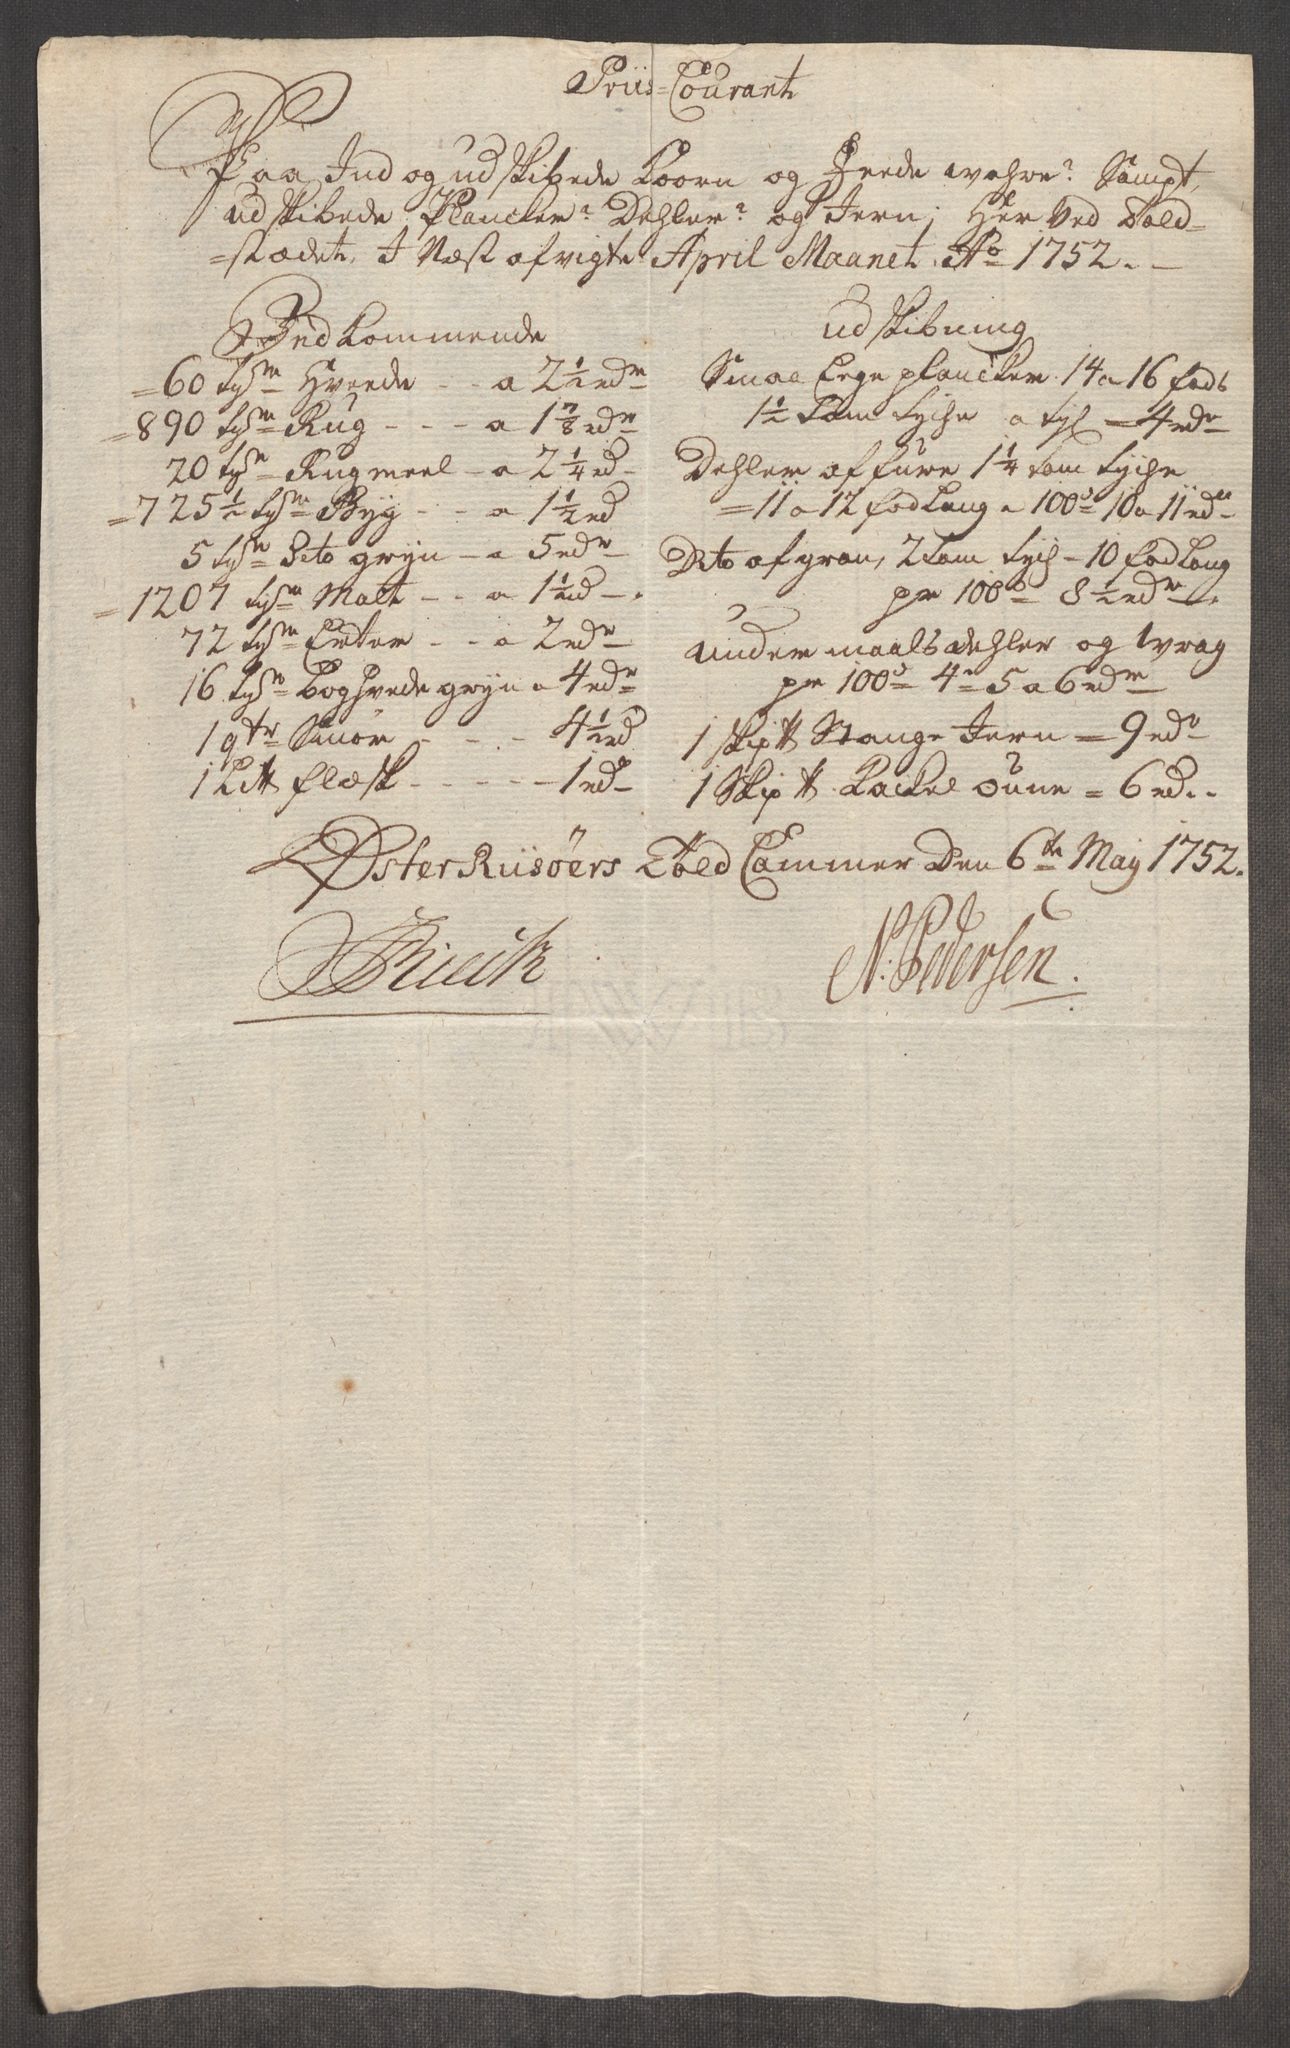 Priis-Courant
Paa Ind og udskibede Koorn og Feede wahre? Sampt,
udskibede Plancker? Dehler? og Jern, Her Ved Told=
=stædet, I Næst afvigte April Maanet. Ao 1752. -
Indkommende
=60 tyßr Hvede - - a 2 1/2 rdr
=890 tyßr Rug - - - a 1 7/8 rdr
20 tyßr Rugmeel - a 2 1/4 rd
=725 1/2 tyßr Byg - - a 1 1/2 rd
5 tyßr Dito gryn - a 5 rdr
=1207 tyßr Malt - - a 1 1/2 rd - .
72 tyßr Erter - - a 2 rdr
16 tyßr Boghvede gryn a 4 rdr
1 qtr Smør - - - - 4 1/2 rd
1 Lit ℔ flæsk - - - - - 1 rdr
udskibning
Smaa Ege plancker 14 a 16 fods
1 1/2 tom tyche a tyl = 4 rdr
Dehler af fure 1 1/4 tom tyche
=11 a 12 fod Lang a 100d 10 a 11 rdr
Dito af gran, 2 tom tych - 10 fod Lang
pr 100d 8 1/2 rdr.
under maals dehler og wrag
pr 100d 4 a 5 a 6 rdr
1 skip ℔ Stange Jern = 9 rdr
1 Skip ℔ Kackel oune = 6 rd. .
Øster Riisøers Told Cammer Den 6te May 1752.
N: Pedersen.